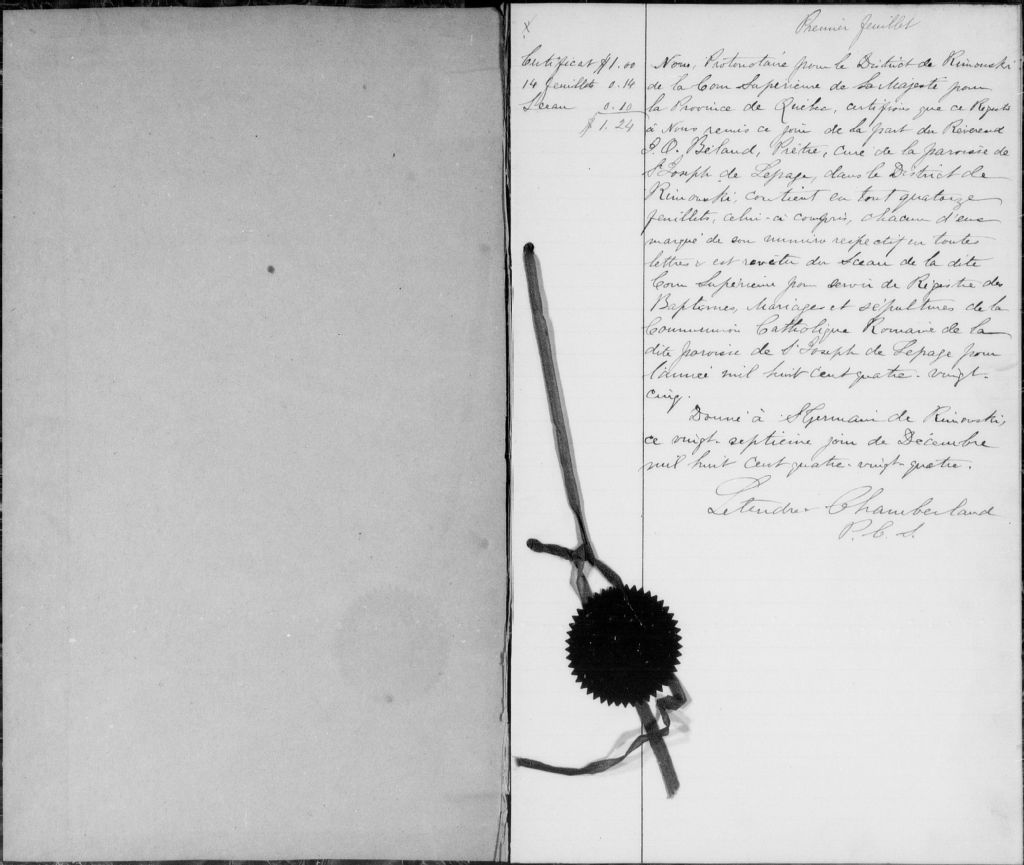 Premier feuillet
X
Certificat $1.00
14 feuillets 0.14
Sceau 0.10
$1.24
Nous, Protonotaire pour le District de Rimouski
de la Cour Supérieure de Sa Majesté pour
la Province de Québec, certifions que ce Registre
à Nous remis ce jour de la part du Révérend
J. O. Béland, Prêtre, curé de la paroisse de
St Joseph de Lepage, dans le District de
Rimouski, contient en tout quatorze
feuillets, celui-ci compris, chacun d'eux
marqué de son numéro respectif en toutes
lettres & est revêtu du Sceau de la dite
Cour Supérieure pour servir de Régistre des
Baptêmes, Mariages et sépultures de la
Communion Catholique Romaine de la
dite paroisse de St Joseph de Lepage pour
l'année mil huit cent quatre-vingt-
cinq.
Donné à St Germain de Rimouski,
ce vingt-septième jour de Décembre
mil huit cent quatre-vingt-quatre.
Letendre & Chamberland
P. C. S.